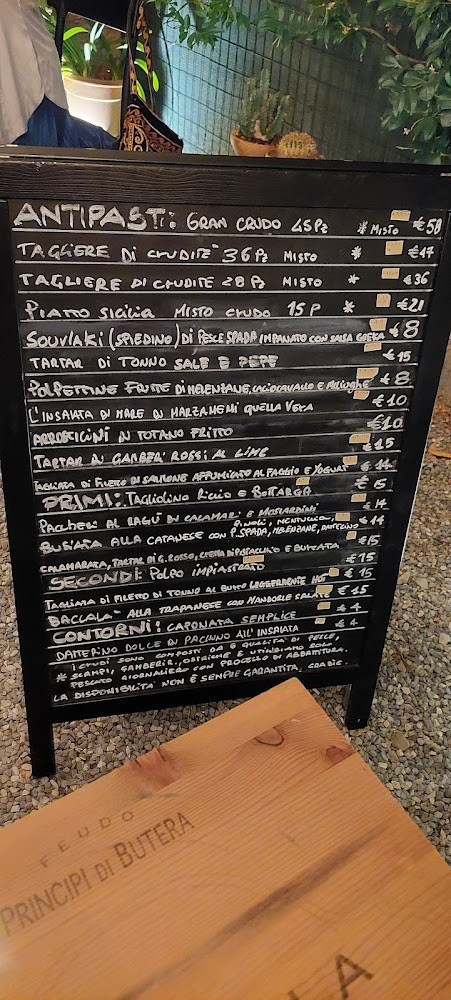 ANTIPASTI: GRAN CRUDO 45 Pz * MISTO €58
TAGLIERE DI CRUDITE' 36 Pz MISTO * €47
TAGLIERE DI CRUDITE 28 Pz MISTO * €36
PIATTO SICILIA MISTO CRUDO 15 P * €21
SOUVLAKI (SPIEDINO) DI PESCE SPADA IMPANATO CON SALSA GRECA €8
TARTAR DI TONNO SALE E PEPE €15
POLPETTINE FRITTE DI MELENZANE, CACIOCAVALLO E ACCIUGHE €8
L'INSALATA DI MARE DI MARZAMEMI QUELLA VERA €10
ARROSTICINI DI TOTANO FRITTO €10
TARTAR DI GAMBERI ROSSI AL LIME €15
TAGLIATA DI FILETTO DI SALMONE AFFUMICATO AL FAGGIO E YOGURT €14
PRIMI: TAGLIOLINO RICCIO E BOTTARGA €15
PACCHERI AL RAGÙ DI CALAMARI E MOSTARDINI €14
BUSIATA ALLA CATANESE CON P. SPADA, MELENZANE, DATTERINO €14
PINOLI, MENTUCCIA,
CALAMARATA, TARTAR DI G. ROSSO, CREMA DI PISTACCHIO E BURRATA €15
SECONDI: POLPO IMPIASTRATO €15
TAGLIATA DI FILETTO DI TONNO AL BURRO LEGGERMENTE HOT €15
BACCALA' ALLA TRAPANESE CON MANDORLE SALATE €15
CONTORNI: CAPONATA SEMPLICE €4
DATTERINO DOLCE DI PACHINO ALL'INSALATA €4
I CRUDI SONO COMPOSTI DA 6 QUALITÀ DI PESCE,
* SCAMPI, GAMBERI, OSTRICHE E UTILIZIAMO SOLO
PESCATO GIORNALIERO CON PROCESSO DI ABBATTITURA.
LA DISPONIBILITÀ NON È SEMPRE GARANTITA, GRAZIE.
FEUDO
PRINCIPI DI BUTERA
LA